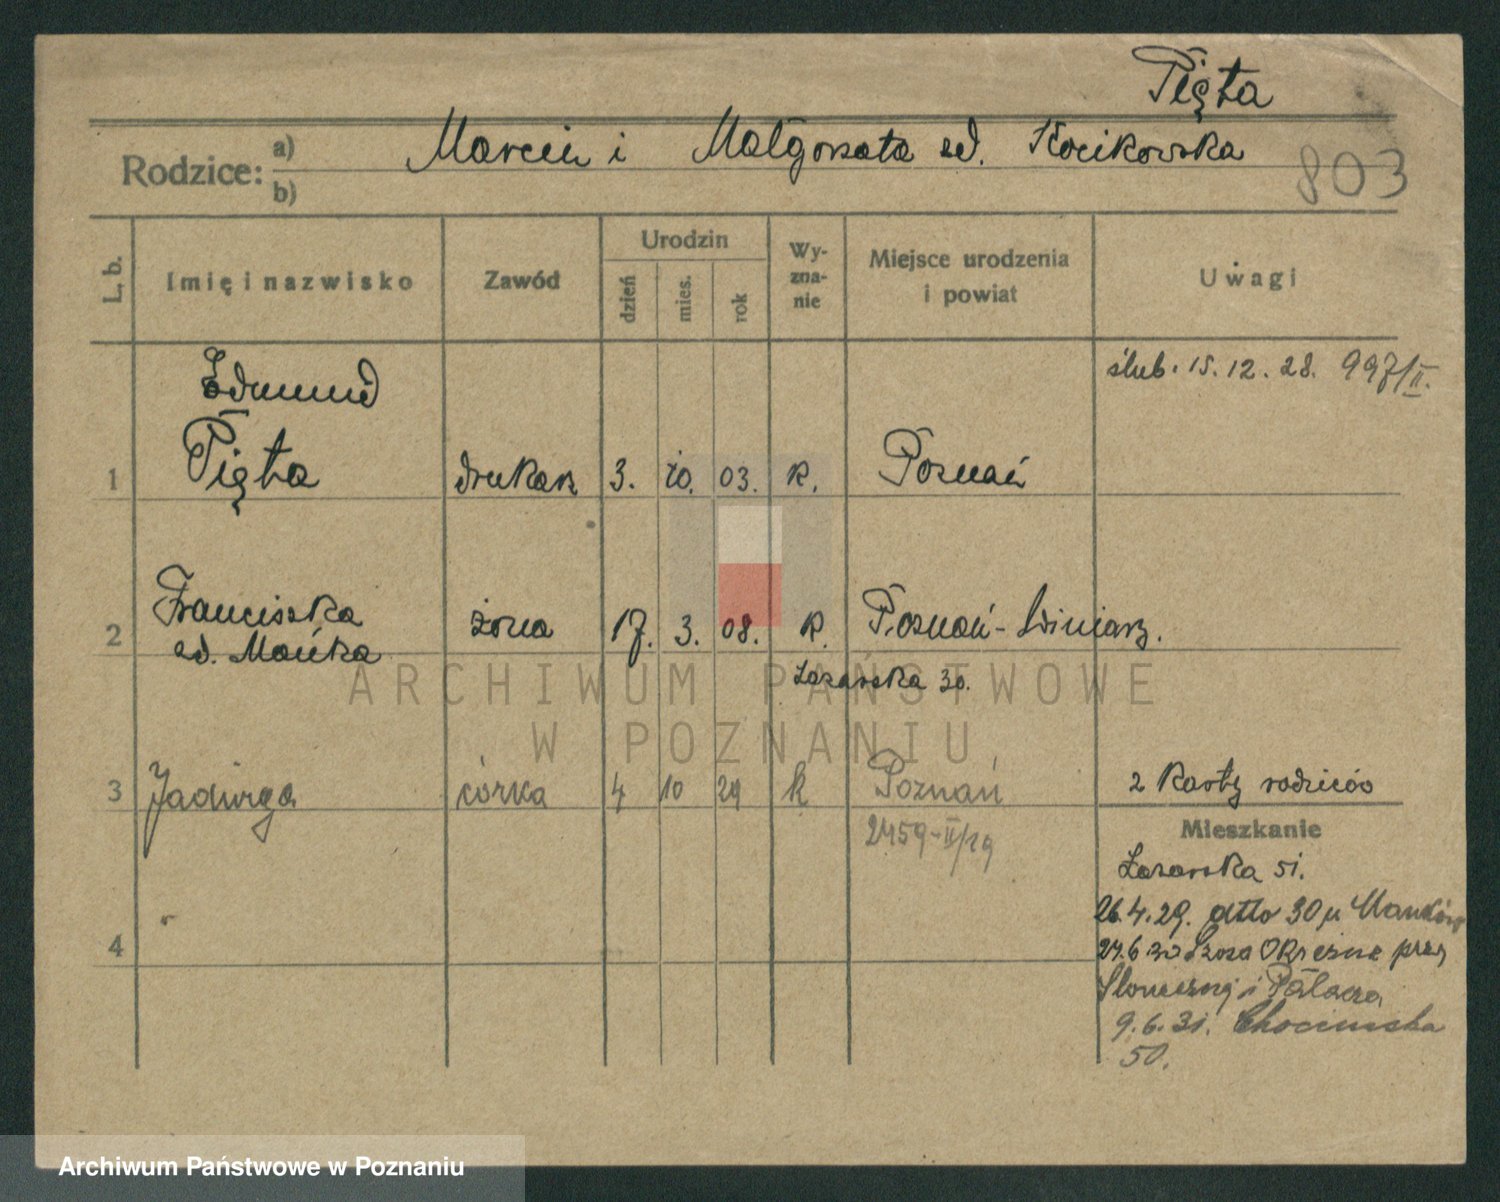 Pięta
Rodzice: a) b) Marcin i Małgorzata zd. Kocikowska
803
L. b. Imię i nazwisko Zawód Urodzin dzień mies. rok Wy-zna-nie Miejsce urodzenia i powiat Uwagi
ślub. 15.12.28. 997/II.
Edmund
1 Pięta drukarz 3. 10. 03. k. Poznań
2 Franciszka żona 17. 3. 08. k. Poznań-Winiary.
zd. Mańka
Łazarska 30.
3 Jadwiga córka 4 10 29 k Poznań
2 karty rodziców
2459-II/29
Mieszkanie
Łazarska 51.
4
26.4.29. dtto 30 u
Szosa Okrężna przy
Słonecznej i Palacza
9.6.31. Chocimska
50.
ARCHIWUM PAŃSTWOWE
W POZNANIU
Archiwum Państwowe w Poznaniu